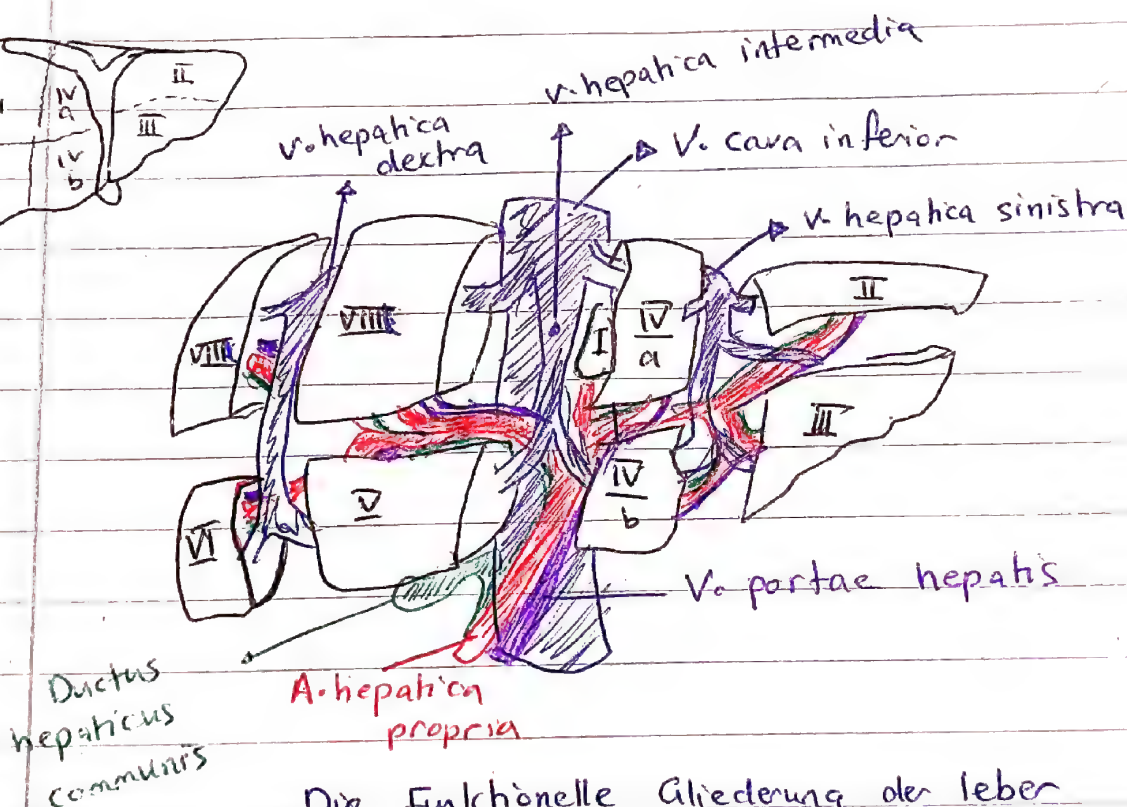 II
IV
a
III
IV
b
v. hepatica intermedia
v. hepatica
dextra
V. cava inferior
v. hepatica sinistra
II
VIII
I
IV
a
VIII
III
V
IV
b
VI
V. portae hepatis
Ductus
hepaticus
communis
A. hepatica
propria
Die Funktionelle Gliederung der leber